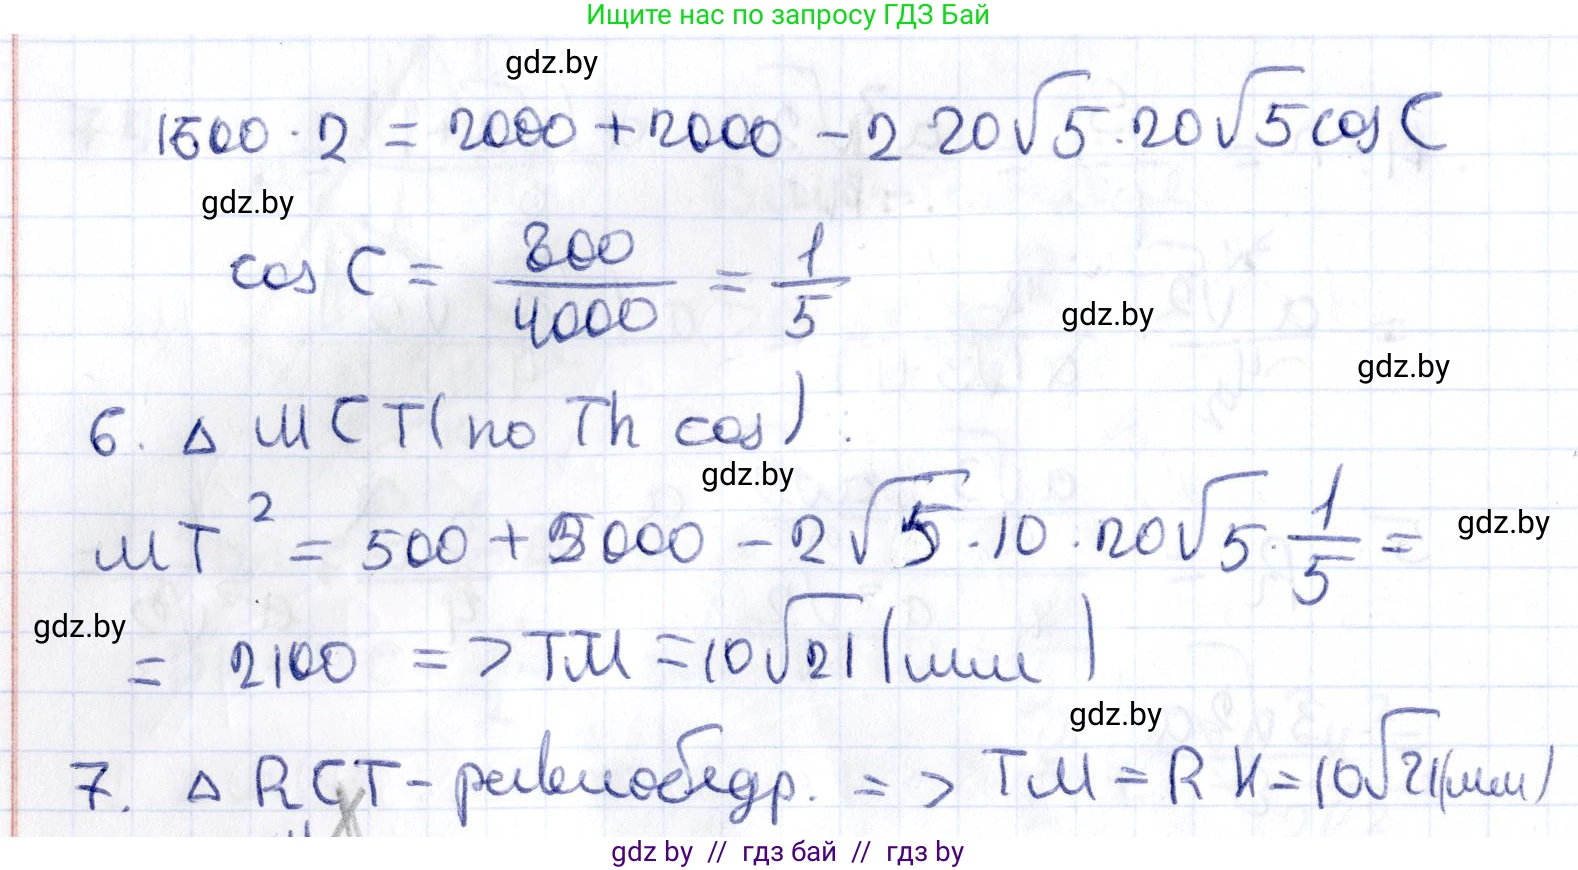 Ищите нас по запросу ГДЗ Бай
gdz.by
1600 · 2 = 2000 + 2000 - 2 20√5 · 20√5 cos C
gdz.by
cos C = 800/4000 = 1/5
gdz.by
gdz.by
6. △ MCT (по Th cos).
gdz.by
MT² = 500 + 2000 - 2√5 · 10 · 20√5 · 1/5 =
gdz.by
gdz.by
= 2100 => TM = 10√21 (мм)
gdz.by
7. △ RCT - равнобедр. => TM = RK = 10√21 (мм)
gdz by // гдз бай // гдз by